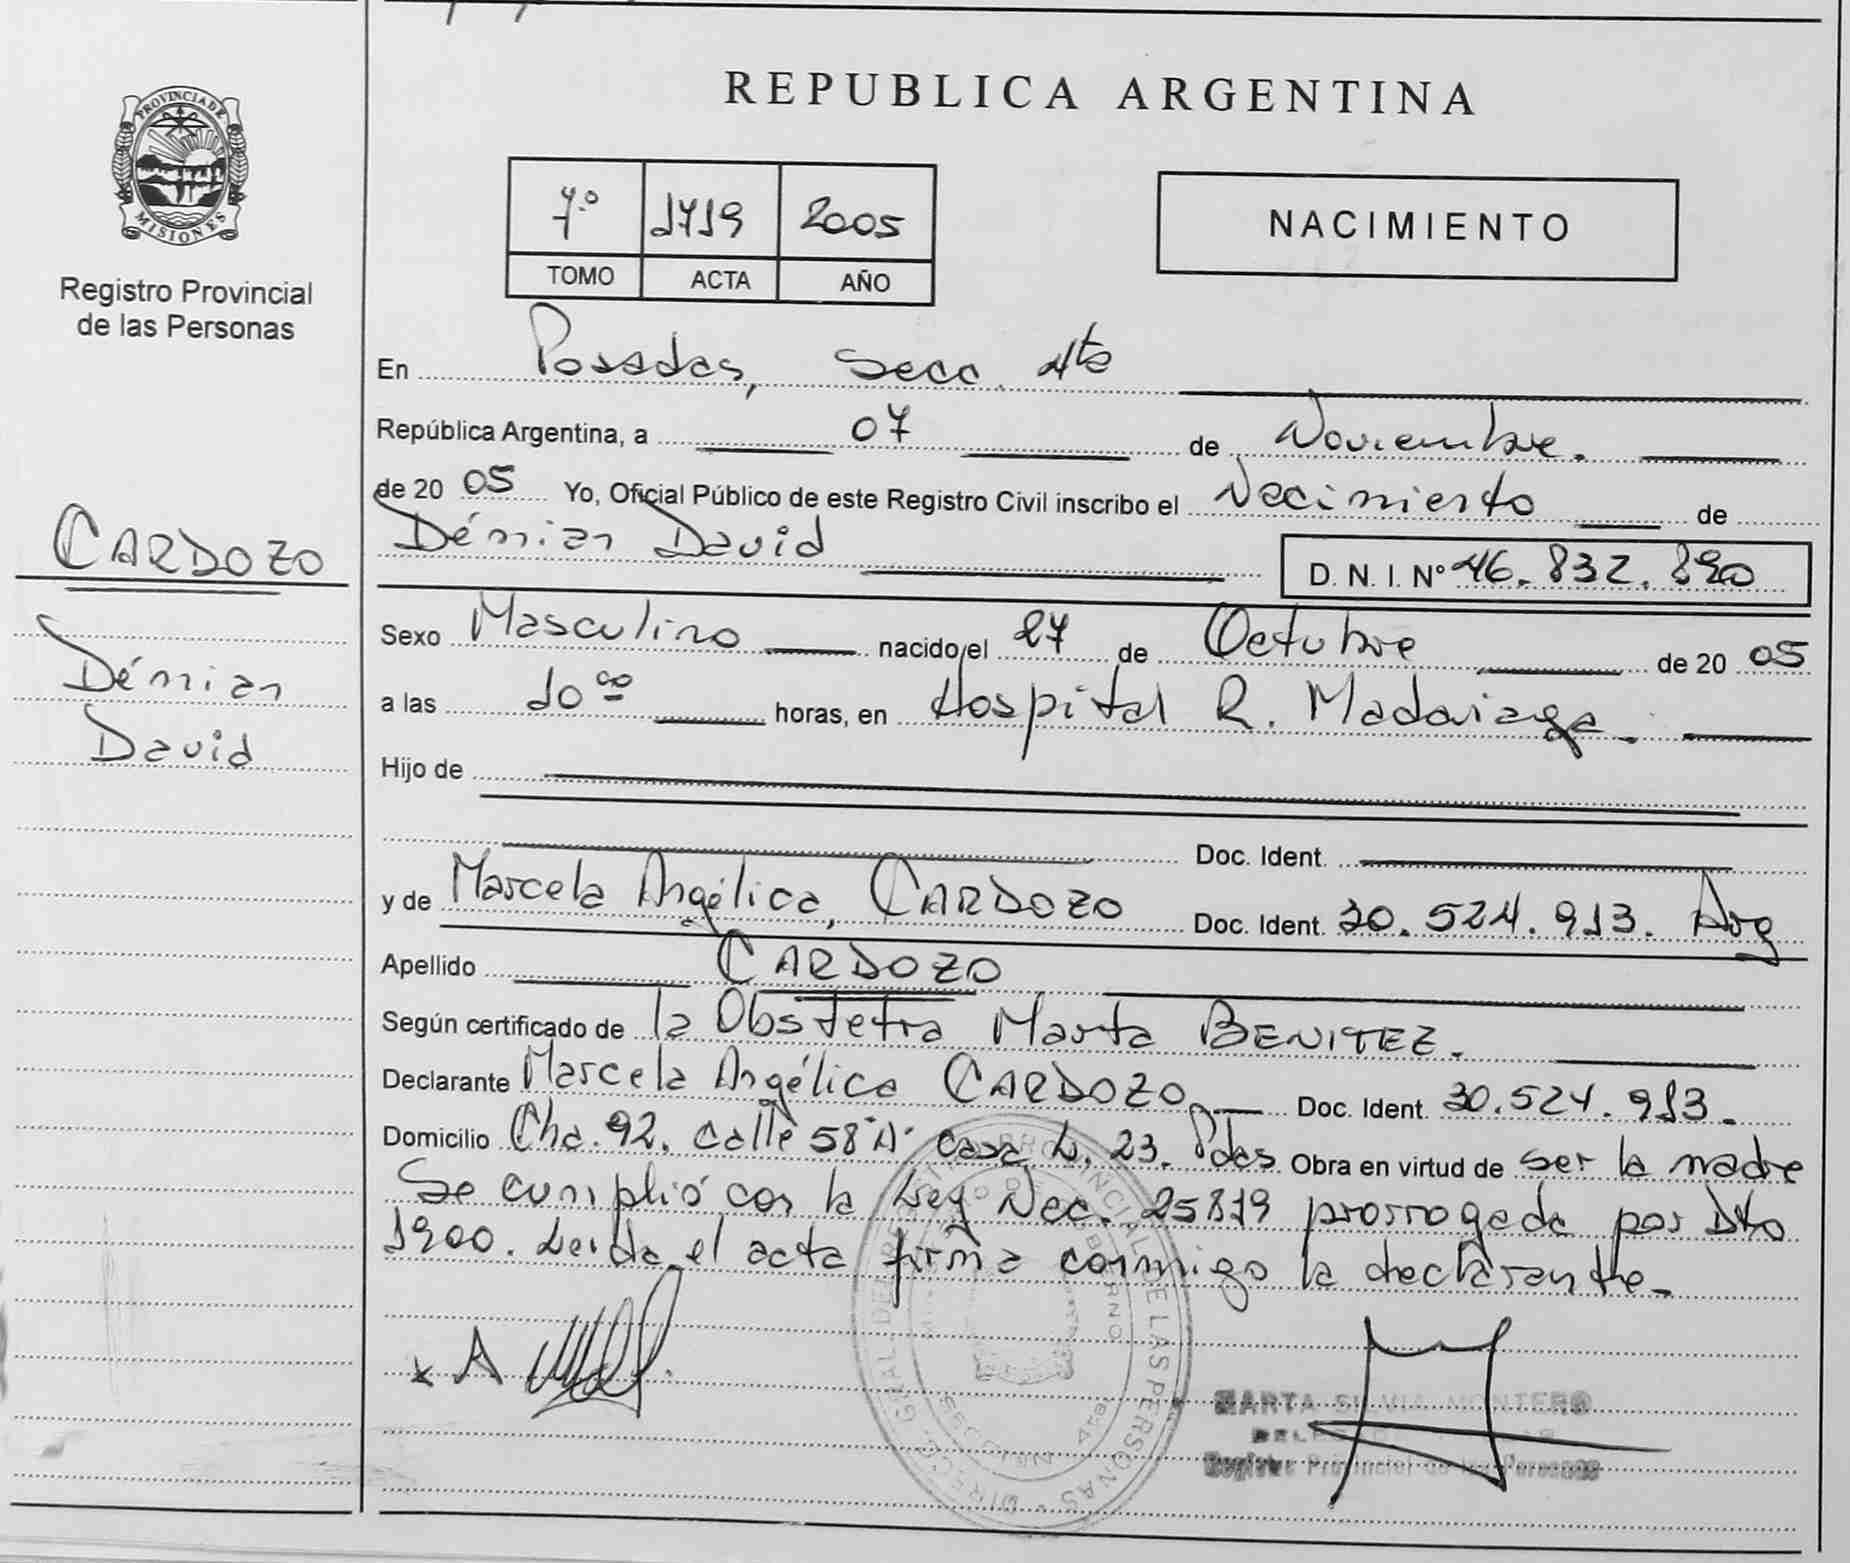 REPUBLICA ARGENTINA
PROVINCIA DE
MISIONES
Registro Provincial
de las Personas
7º 1719 2005
TOMO ACTA AÑO
NACIMIENTO
En Posadas, Secc. 4ta
República Argentina, a 07 de Noviembre.
de 20 05 Yo, Oficial Público de este Registro Civil inscribo el Nacimiento de
Démian David D. N. I. Nº 46.832.890
CARDOZO
Démian
David
Sexo Masculino nacido el 27 de Octubre de 20 05
a las 10 oo horas, en Hospital R. Madariaga.
Hijo de
Doc. Ident.
y de Marcela Angélica, CARDOZO Doc. Ident. 30.524.913. Arg
Apellido CARDOZO
Según certificado de la Obstetra Marta BENITEZ.
Declarante Marcela Angélica CARDOZO Doc. Ident. 30.524.913.
Domicilio Cha. 92. Calle 58"A" Casa L. 23. Pdas Obra en virtud de ser la madre
Se cumplió con la Ley Nac. 25819 prorrogada por Dto
1900. Leída el acta firma conmigo la declarante.
MARTA SILVIA MONTERO
Registro Provincial de las Personas